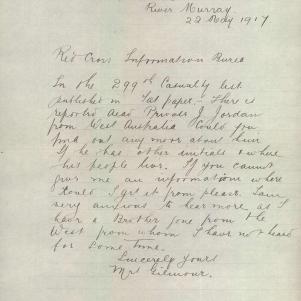 River Murray.
22 May 1917.
Red Cross Information Bureau
In the 299th Casualty list
published in Sat paper,- There is
reported dead Private J. Jordan
from West Australia Could you
find out any more about him
If he has other initials & where
his people live. If you cannot
give me an information where
could I get it from please. I am
very anxious to hear more as I
have a Brother gone from the
West from whom I have not heard
for some time.
Sincerely yours
Mrs Gilmour.